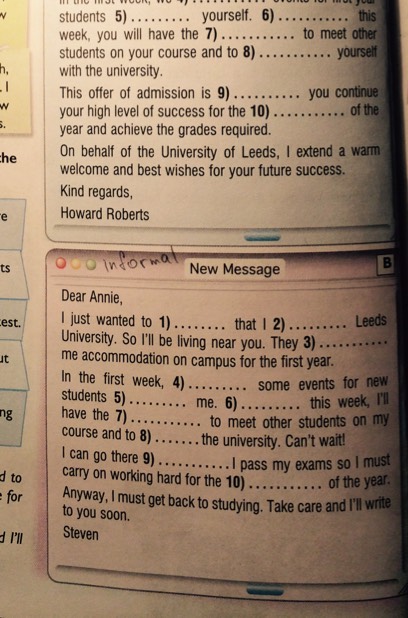 students 5) ........... yourself. 6) ........... this
week, you will have the 7) ........... to meet other
students on your course and to 8) .......... yourself
with the university.
This offer of admission is 9) .......... you continue
your high level of success for the 10) ........... of the
year and achieve the grades required.
On behalf of the University of Leeds, I extend a warm
welcome and best wishes for your future success.
Kind regards,
Howard Roberts
Informal
New Message
B
Dear Annie,
I just wanted to 1) ........ that I 2) ......... Leeds
University. So I'll be living near you. They 3) ...........
me accommodation on campus for the first year.
In the first week, 4) ......... some events for new
students 5) ......... me. 6) ......... this week, I'll
have the 7) ........... to meet other students on my
course and to 8) ....... the university. Can't wait!
I can go there 9) ........... I pass my exams so I must
carry on working hard for the 10) ........... of the year.
Anyway, I must get back to studying. Take care and I'll write
to you soon.
Steven